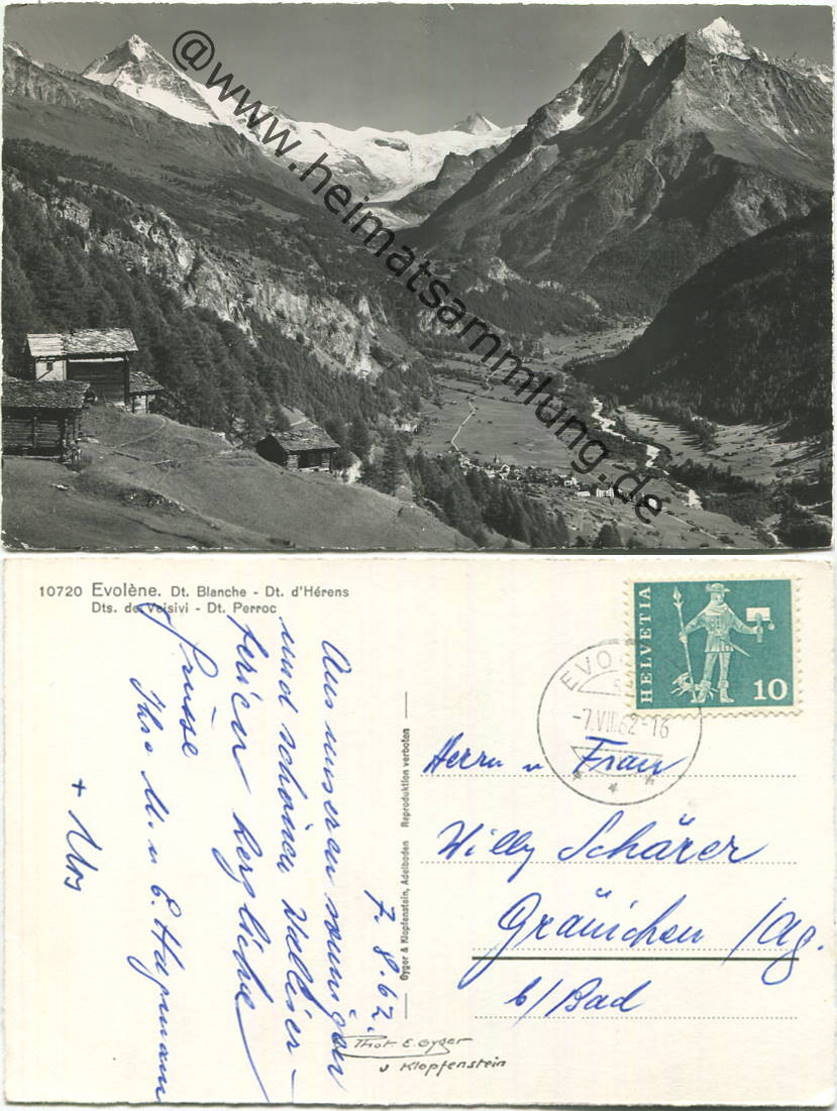 @www.heimatsammlung.de
10720 Evolène. Dt. Blanche - Dt. d'Hérens
Dts. de Veisivi - Dt. Perroc
HELVETIA
10
EVO
-7.VIII.62-16
Herrn u Frau
Willy Schärer
Gränichen /Ag.
b/Bad
7.8.62.
Aus unseren sonnigen
und schönen Walliser-
ferien herzliche
Grüsse
Ihre M. u E. Hagmann
+ Urs
Gyger & Klopfenstein, Adelboden Reproduktion verboten
Phot E. Gyger
u Klopfenstein